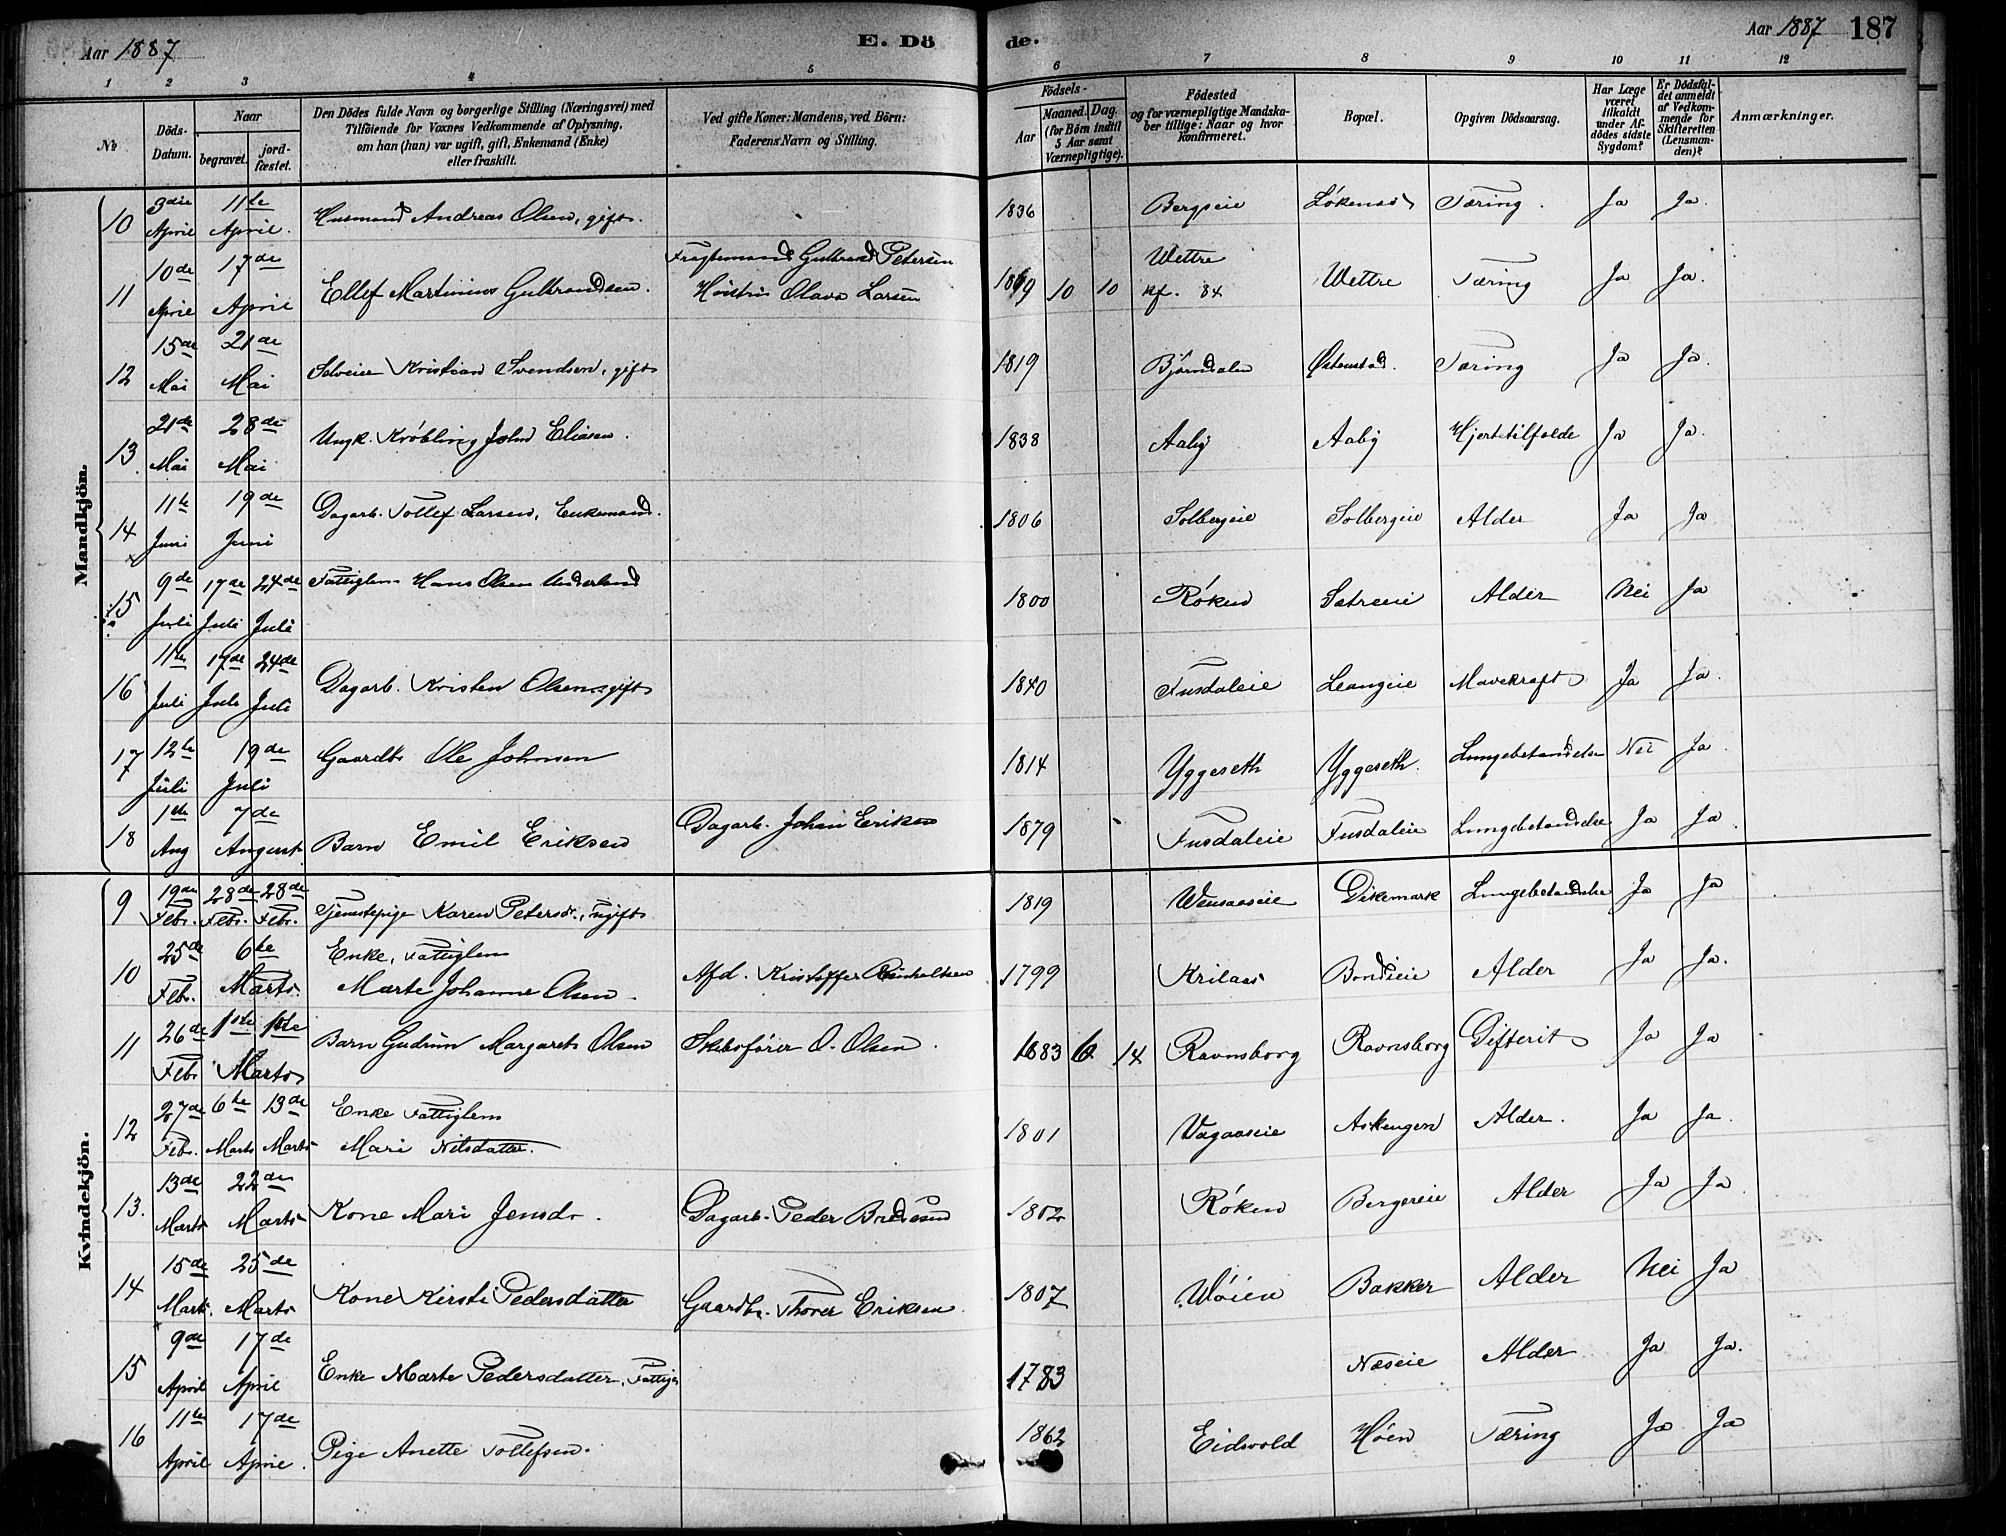 Aar 1887 E. Dö
de. Aar 1887 187
1 2 3 4 5 6 7 8 9 10 11 12
№ Döds-Datum. Naar begravet. jordfæstet.
Den Dödes fulde Navn og borgerlige Stilling (Næringsvei) med
Tilföiende for Voxnes Vedkommende af Oplysning,
om han (hun) var ugift, gift, Enkemand (Enke)
eller fraskilt.
Ved gifte Koner: Mandens, ved Börn:
Faderens Navn og Stilling.
Födsels-
Aar Maaned. Dag.
(for Börn indtil
5 Aar samt
Værnepligtige).
Födested
og for værnepligtige Mandska-
ber tillige: Naar og hvor
konfirmeret.
Bopæl.
Opgiven Dödsaarsag.
Har Læge
været
tilkaldt
under Af-
dödes sidste
Sygdom?
Er Dödsfal-
det anmeldt
af Vedkom-
mende for
Skifteretten
(Lensman-
den)?
Anmærkninger.
Mandkjön.
10 3die April 11te April. Husmand Andreas Olsen, gift. 1836 Bergseie Løkenes Tæring. Ja Ja.
11 10de April 17de April Ellef Martinius Gulbrandsen. Fragtemand Gulbrand Petersen
Hustru Olava Larsen 1869 10 10 Wettre
kf. 84 Wettre Tæring Ja Ja.
12 15de Mai 21de Mai Selveier Kristian Svendsen, gift 1819 Bjørndalen Østenstad. Tæring Ja Ja.
13 21de Mai 28de Mai Ungk. Krøbling John Eliasen. 1838 Aaby Aaby Hjertetilfælde Ja Ja.
14 11te Juni 19de Juni Dagarb. Tollef Larsen, Enkemand. 1806 Solbergeie Solbergeie Alder Ja Ja
15 9de Juli 17de Juli 24de Juli Fattiglem Hans Olsen Underland 1800 Røken Sætreeie Alder Nei Ja
16 11te Juli 17de Juli 24de Juli Dagarb. Kristen Olsen, gift 1840 Fusdaleie Leangeie Mavekræft Ja Ja.
17 12te Juli 19de Juli Gaardbr. Ole Johnsen 1814 Yggeseth Yggeseth. Lungebetændelse Nei Ja.
18 1ste Aug 7de August Barn Emil Eriksen Dagarb. Johan Eriksen 1879 Fusdaleie Fusdaleie Lungebetændelse Ja Ja.
Kvindekjön.
9 19de Febr. 28de Febr. 28de Febr. Tjenestepige Karen Petersdr., ugift 1819 Wensaaseie Dikemark Lungebetændelse Ja Ja
10 25de Febr. 6te Marts. Enke, Fattiglem
Marte Johanne Olsen. Afd. Kristoffer 1799 Krilaas Bondieie Alder Ja Ja.
11 26de Febr 1ste 1ste Marts Barn Gudrun Margaret Olsen Skibsfører O. Olsen. 1883 6 14 Ravnsborg Ravnsborg Difterit Ja Ja
12 27de Febr. 6te Marts 13de Marts Enke Fattiglem
Mari Nilsdatter. 1801 Vogaaseie Askengen Alder. Ja Ja.
13. 13de Marts 22de Marts Kone Mari Jensdr. Dagarb. Peder Bredesen 1802 Røken Bergereie Alder Ja Ja.
14 15de Marts. 25de Marts Kone Kirsti Pedersdatter Gaardbr. Thorer Eriksen. 1807 Wøien Bakker Alder Nei Ja
15 9de April 17de April Enke Marte Pedersdatter, Fattigl. 1783 Næseie Alder Ja Ja.
16 11te April 17de April. Pige Anette Tollefsen. 1862 Eidsvold Høen Tæring Ja Ja